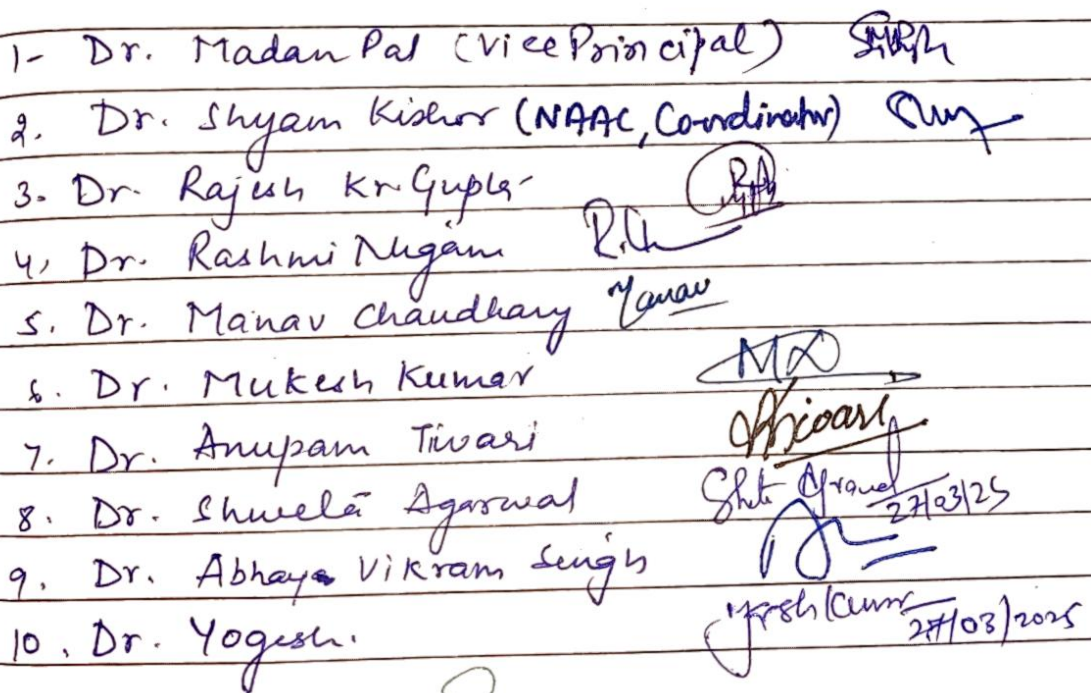 1- Dr. Madan Pal (Vice Principal)
2. Dr. Shyam Kishor (NAAC, Co-ordinator)
3. Dr. Rajesh Kr. Gupta
4, Dr. Rashmi Nigam
5. Dr. Manav Chaudhary Manav
6. Dr. Mukesh Kumar
7. Dr. Anupam Tiwari
8. Dr. Shweta Agarwal 27/03/25
9, Dr. Abhay Vikram Singh
10, Dr. Yogesh. 27/03/2025